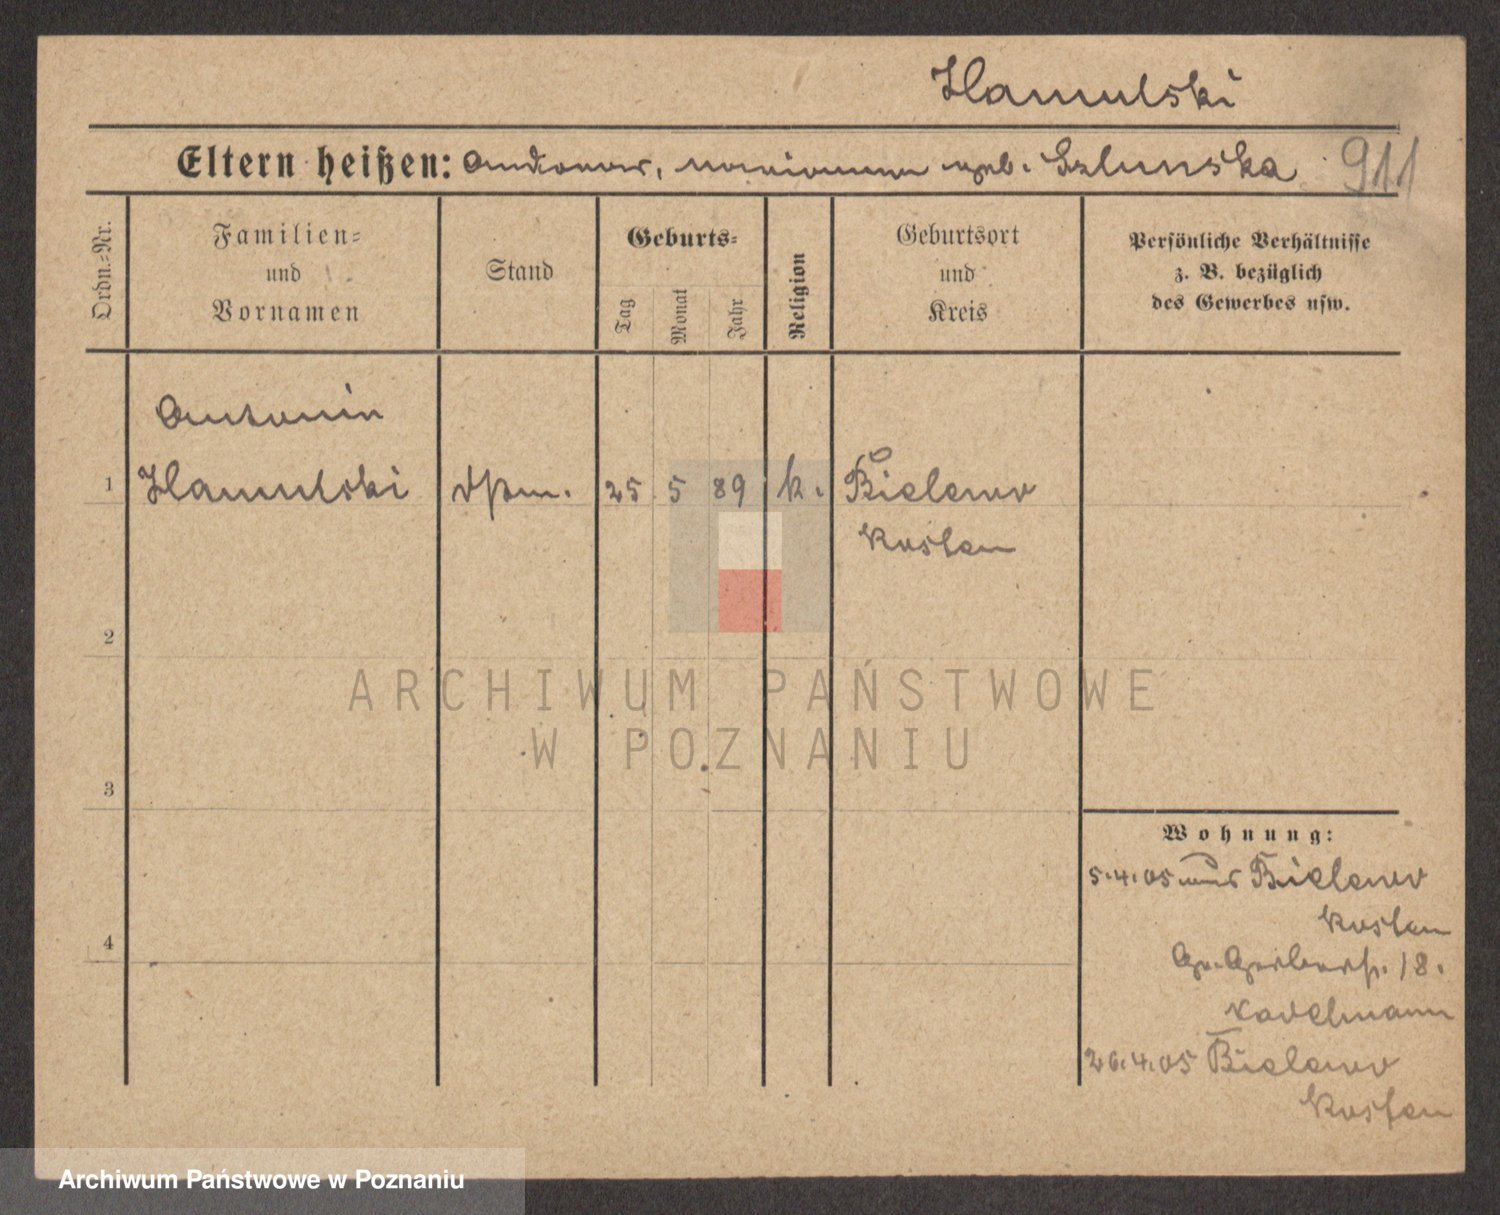 Hamulski
Eltern heißen: Andreas, Marianna geb. Szlunska 911
Ordn.-Nr.
Familien-
und
Vornamen
Stand
Geburts-
Tag
Monat
Jahr
Religion
Geburtsort
und
Kreis
Persönliche Verhältnisse
z. B. bezüglich
des Gewerbes usw.
Antonin
1 Hamulski 25 5 89 k. Bielewo
Kosten
2
3
4
ARCHIWUM PAŃSTWOWE
W POZNANIU
Wohnung:
5.4.05 aus Bielewo
Kosten
Gr. Gerberstr. 18.
26.4.05 Bielewo
Kosten
Archiwum Państwowe w Poznaniu